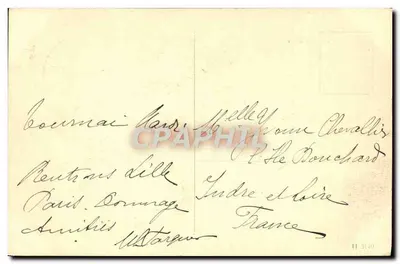 Tournai Mardi
Rentrons Lille
Paris. Dommage
Amitiés
Melle Yvonne Chevallier
l'Ile Bouchard
Indre et Loire
France
CPAPHIL.com